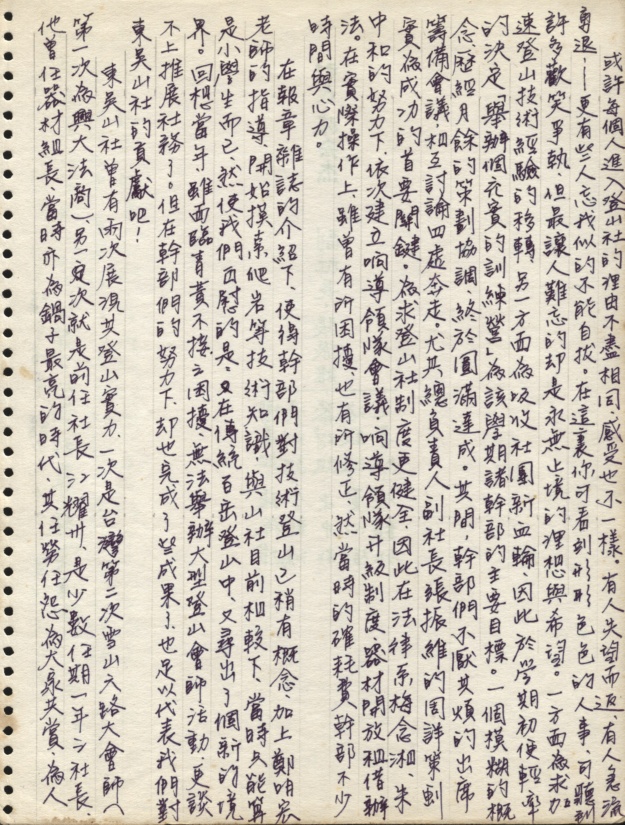 或許每個人進入登山社的理由不盡相同,感受也不一樣。有人失望而返,有人急流
勇退——更有些人忘我似的不能自拔。在這裏你可看到形形色色的人事,可聽到
許多歡笑爭執,但最讓人難忘的却是永無止境的理想與希望。一方面為求加
速登山技術經驗的移轉,另一方面為吸收社團新血輪,因此於學期初便輕率
的決定,舉辦個充實的訓練營,為該學期諸幹部的主要目標。一個模糊的概
念歷經月餘的策劃協調,終於圓滿達成。其間,幹部們不厭其煩的出席
籌備會議,相互討論四處奔走。尤其總負責人副社長張振維的周詳策劃
實為成功的首要關鍵。為求登山社制度更健全,因此在法律系梅念湘、朱
中和的努力下,依次建立响導領隊會議,响導領隊升級制度,器材開放租借辦
法。在實際操作上,雖曾有所困擾,也有所修正,然當時的確耗費幹部不少
時間與心力。
在報章雜誌的介紹下,使得幹部們對技術登山已稍有概念,加上鄭明宏
老師的指導,開始摸索爬岩等技術知識,與山社目前相較下,當時只能算
是小學生而已,然使我們面慰的是,又在傳統百岳登山中,又尋出了個新的境
界。回想當年,雖面臨青黃不接之困擾,無法舉辦大型登山會師活動,更談
不上推展社務了。但在幹部們的努力下,却也完成了些成果,也足以代表我們對
東吳山社的貢獻吧!
東吳山社曾有兩次展現其登山實力,一次是台灣第二次雪山六路大會師(
第一次為興大法商),另一次就是前任社長江耀卅,是少數任期一年之社長,
他曾任器材組長,當時亦為鍋子最亮的時代,其任勞任怨為大家共賞,為人